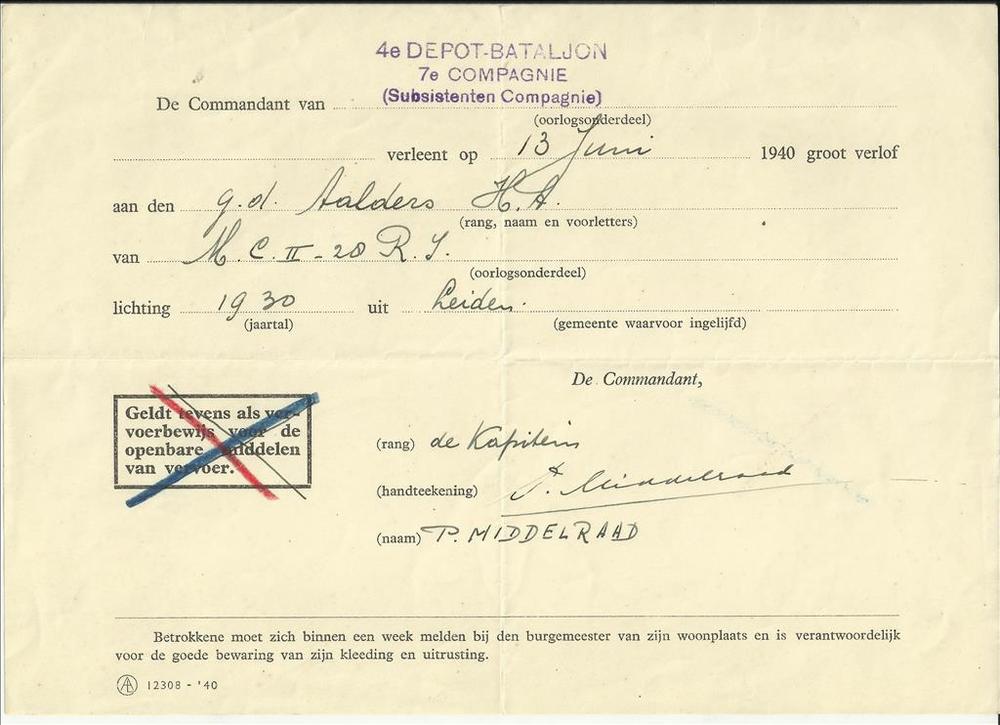 4e DEPOT-BATALJON
7e COMPAGNIE
De Commandant van (Subsistenten Compagnie)
(oorlogsonderdeel)
verleent op 13 Juni 1940 groot verlof
aan den g.d. Aalders H.A.
(rang, naam en voorletters)
van M.C. II - 28 R.I.
(oorlogsonderdeel)
lichting 1930 uit Leiden.
(jaartal) (gemeente waarvoor ingelijfd)
De Commandant,
Geldt tevens als ver-
voerbewijs voor de
openbare middelen
van vervoer.
(rang) de Kapitein
(handteekening) P. Middelraad
(naam) P. MIDDELRAAD
Betrokkene moet zich binnen een week melden bij den burgemeester van zijn woonplaats en is verantwoordelijk
voor de goede bewaring van zijn kleeding en uitrusting.
12308 - '40